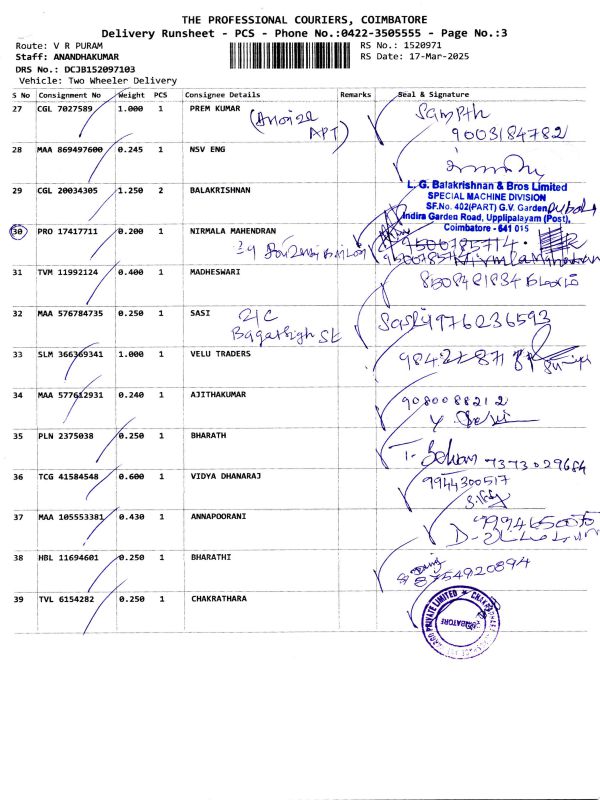 THE PROFESSIONAL COURIERS, COIMBATORE
Delivery Runsheet - PCS - Phone No.:0422-3505555 - Page No.:3
Route: V R PURAM
RS No.: 1520971
Staff: ANANDHAKUMAR
RS Date: 17-Mar-2025
DRS No.: DCJB152097103
Vehicle: Two Wheeler Delivery
S No Consignment No Weight PCS Consignee Details Remarks Seal & Signature
27 CGL 7027589 1.000 1 PREM KUMAR
APT)
9003184782
28 MAA 869497600 0.245 1 NSV ENG
29 CGL 20034305 1.250 2 BALAKRISHNAN
L. G. Balakrishnan & Bros Limited
SPECIAL MACHINE DIVISION
SF.No. 402(PART) G.V. Garden
Indira Garden Road, Upplipalayam (Post),
Coimbatore - 641 015
30 PRO 17417711 0.200 1 NIRMALA MAHENDRAN
9500785714
31 TVM 11992124 0.400 1 MADHESWARI
8508481834
32 MAA 576784735 0.250 1 SASI 2/C
Sasi 9976236593
33 SLM 366369341 1.000 1 VELU TRADERS
34 MAA 577612931 0.240 1 AJITHAKUMAR
9080088212
35 PLN 2375038 0.250 1 BHARATH
7373029684
36 TCG 41584548 0.600 1 VIDYA DHANARAJ
9944300517
37 MAA 105553381 0.430 1 ANNAPOORANI
38 HBL 11694601 0.250 1 BHARATHI
8754920894
39 TVL 6154282 0.250 1 CHAKRATHARA
PRIVATE LIMITED